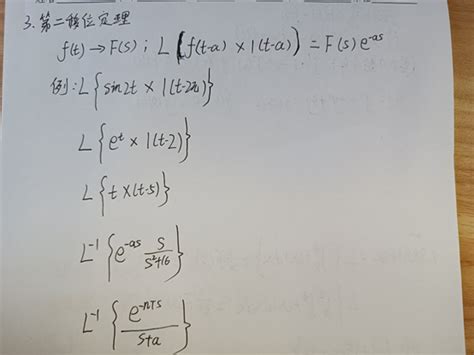 3. 第二移位定理
f(t) → F(s) ; L(f(t-a) × 1(t-a)) = F(s) e^-as
例: L{sin2t × 1(t-2π)}
L{e^t × 1(t-2)}
L{t × (t-5)}
L^-1{e^-as s/(s²+16)}
L^-1{e^-nTs/(s+a)}